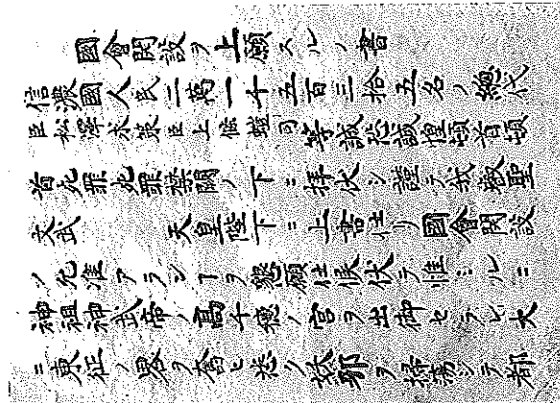 國會開設ヲ上願スルノ書
信濃國人民二萬一千五百三拾五名ノ總代
臣松澤求策臣上條螘司等誠恐誠惶頓首頓
首死罪死罪禁闕ノ下ニ拜伏シ謹テ我叡聖
文武　　天皇陛下ニ上書仕リ國會開設
ノ允准アランヿヲ懇願仕候伏テ惟ミルニ
神祖神武帝ノ高千穂ノ宮ヲ出御セラレ大
ニ東征ノ畧ヲ奮ヒ悉ク妖邪ヲ掃蕩シテ都